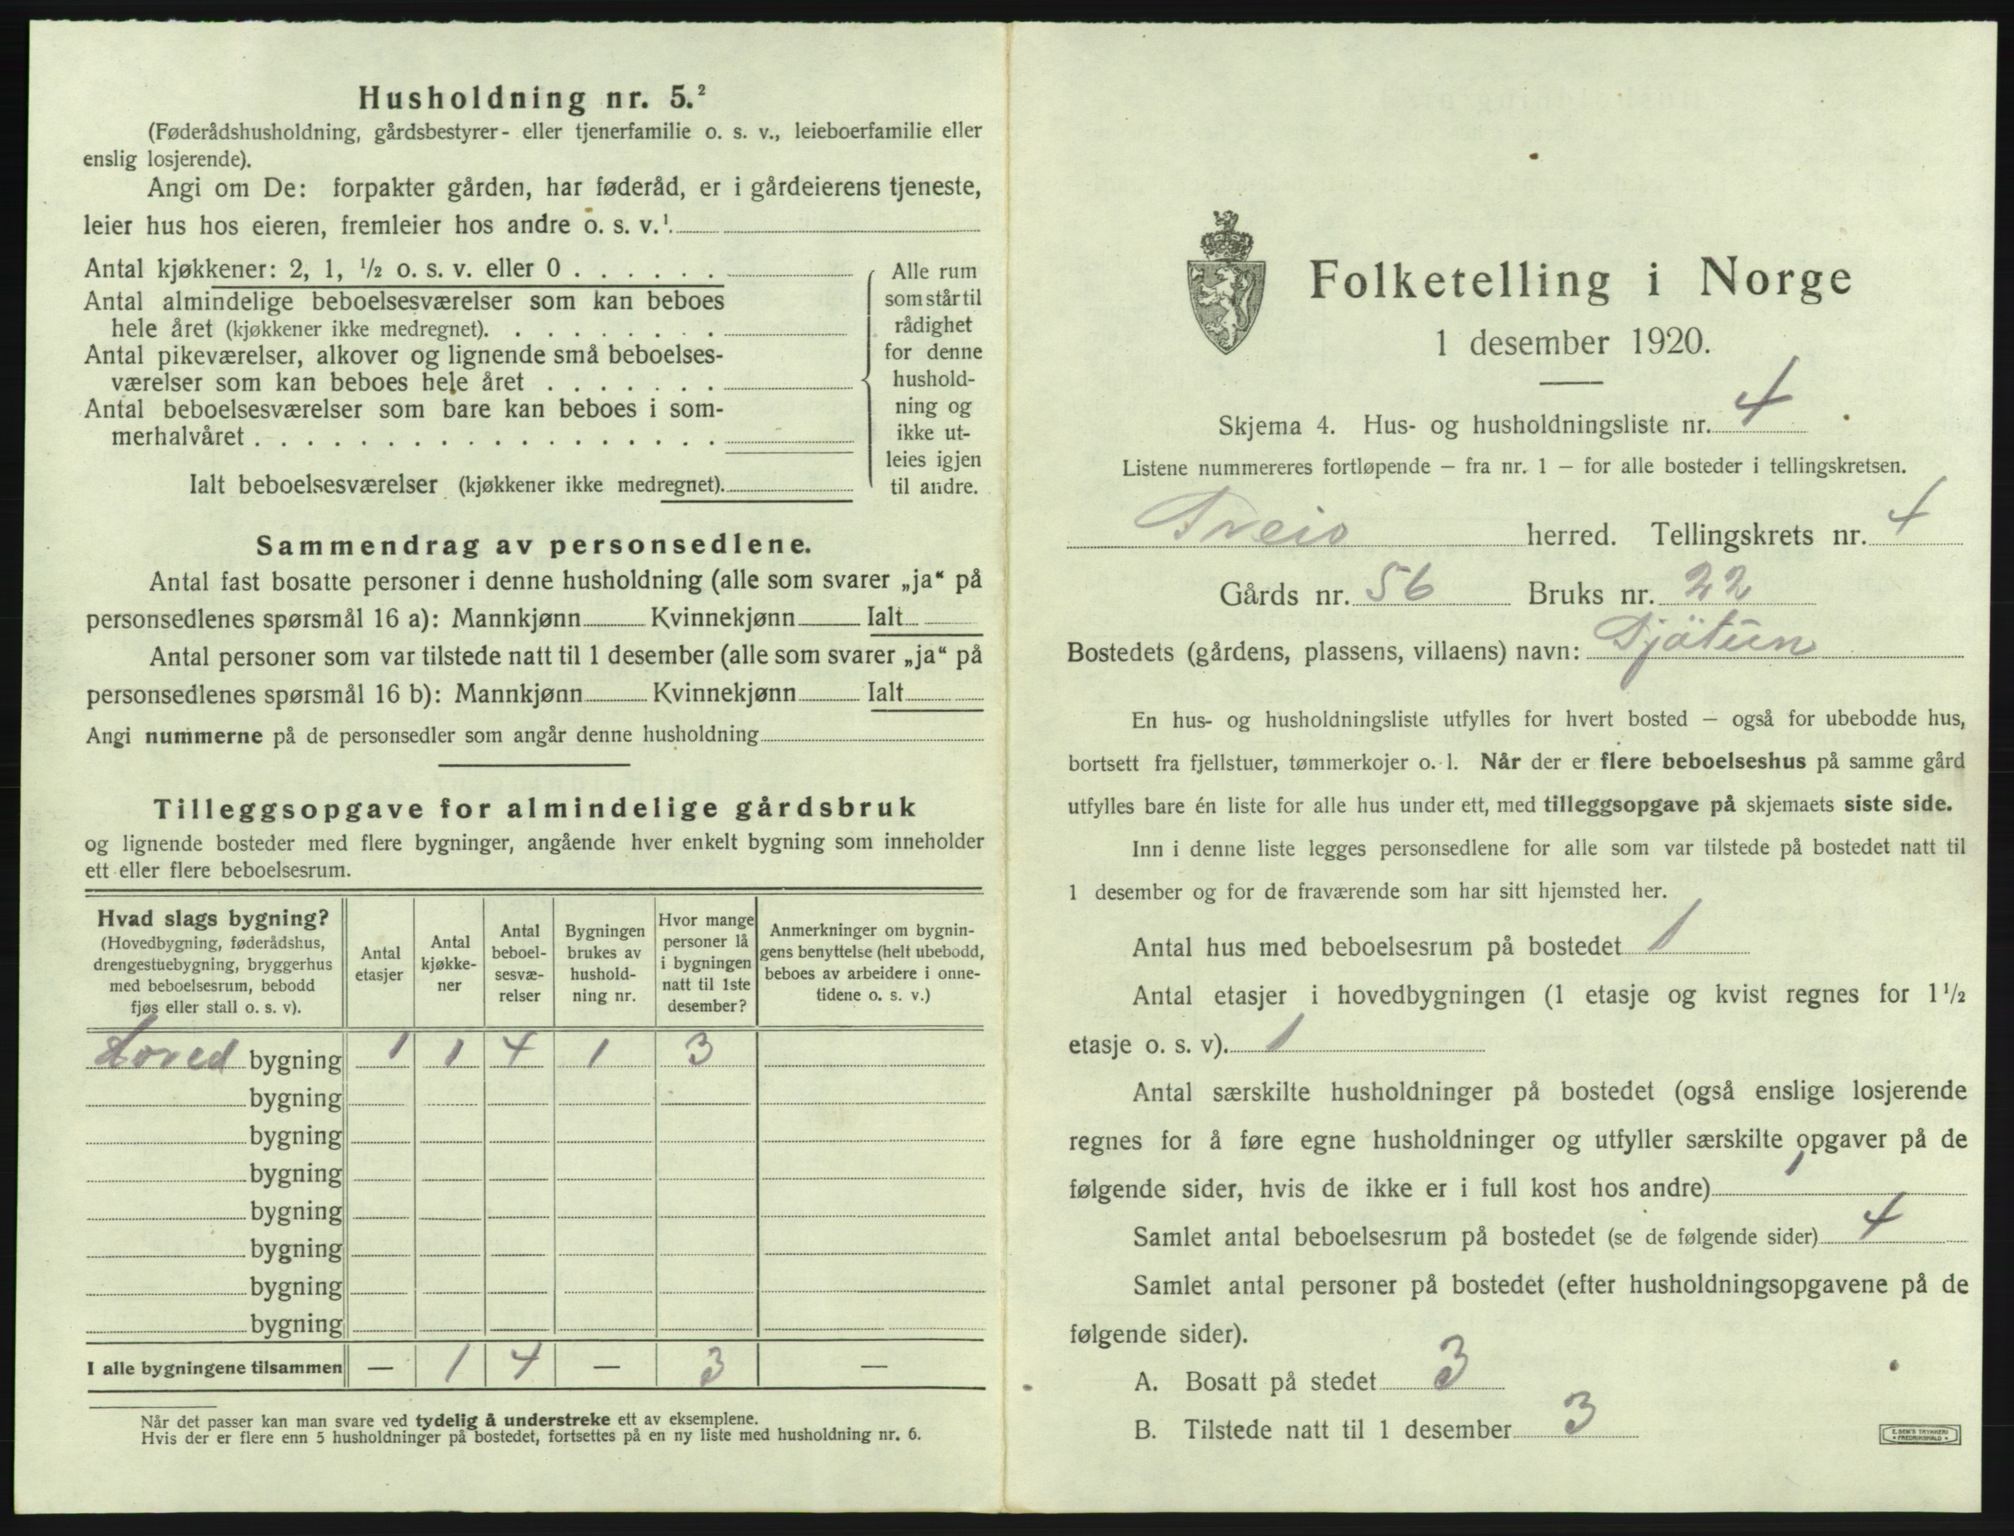 Husholdning nr. 5.²
(Føderådshusholdning, gårdsbestyrer- eller tjenerfamilie o. s. v., leieboerfamilie eller
enslig losjerende).
Angi om De: forpakter gården, har føderåd, er i gårdeierens tjeneste,
leier hus hos eieren, fremleier hos andre o. s. v.¹
Antal kjøkkener: 2, 1, ½ o. s. v. eller 0 . . . . . .
Antal almindelige beboelsesværelser som kan beboes
hele året (kjøkkener ikke medregnet). . . . . . . . .
Antal pikeværelser, alkover og lignende små beboelses-
værelser som kan beboes hele året . . . . . . .
Antal beboelsesværelser som bare kan beboes i som-
merhalvåret . . . . . . . . . . . . . . . . . .
Ialt beboelsesværelser (kjøkkener ikke medregnet).
Alle rum
som står til
rådighet
for denne
hushold-
ning og
ikke ut-
leies igjen
til andre.
Sammendrag av personsedlene.
Antal fast bosatte personer i denne husholdning (alle som svarer „ja“ på
personsedlenes spørsmål 16 a): Mannkjønn Kvinnekjønn Ialt
Antal personer som var tilstede natt til 1 desember (alle som svarer „ja“ på
personsedlenes spørsmål 16 b): Mannkjønn Kvinnekjønn Ialt
Angi nummerne på de personsedler som angår denne husholdning
Tilleggsopgave for almindelige gårdsbruk
og lignende bosteder med flere bygninger, angående hver enkelt bygning som inneholder
ett eller flere beboelsesrum.
Hvad slags bygning?
(Hovedbygning, føderådshus,
drengestuebygning, bryggerhus
med beboelsesrum, bebodd
fjøs eller stall o. s. v).
Antal
etasjer
Antal
kjøkke-
ner
Antal
beboel-
sesvæ-
relser
Bygningen
brukes av
hushold-
ning nr.
Hvor mange
personer lå
i bygningen
natt til 1ste
desember?
Anmerkninger om bygnin-
gens benyttelse (helt ubebodd,
beboes av arbeidere i onne-
tidene o. s. v.)
Hoved bygning 1 1 4 1 3
bygning
bygning
bygning
bygning
bygning
bygning
bygning
I alle bygningene tilsammen — 1 4 — 3 —
Når det passer kan man svare ved tydelig å understreke ett av eksemplene.
Hvis der er flere enn 5 husholdninger på bostedet, fortsettes på en ny liste med husholdning nr. 6.
Folketelling i Norge
1 desember 1920.
Skjema 4. Hus- og husholdningsliste nr. 4
Listene nummereres fortløpende — fra nr. 1 — for alle bosteder i tellingskretsen.
Sveio herred. Tellingskrets nr. 4
Gårds nr. 56 Bruks nr. 22
Bostedets (gårdens, plassens, villaens) navn: Sjötun
En hus- og husholdningsliste utfylles for hvert bosted — også for ubebodde hus,
bortsett fra fjellstuer, tømmerkojer o. l. Når der er flere beboelseshus på samme gård
utfylles bare én liste for alle hus under ett, med tilleggsopgave på skjemaets siste side.
Inn i denne liste legges personsedlene for alle som var tilstede på bostedet natt til
1 desember og for de fraværende som har sitt hjemsted her.
Antal hus med beboelsesrum på bostedet 1
Antal etasjer i hovedbygningen (1 etasje og kvist regnes for 1½
etasje o. s. v). 1
Antal særskilte husholdninger på bostedet (også enslige losjerende
regnes for å føre egne husholdninger og utfyller særskilte opgaver på de
følgende sider, hvis de ikke er i full kost hos andre) 1
Samlet antal beboelsesrum på bostedet (se de følgende sider) 4
Samlet antal personer på bostedet (efter husholdningsopgavene på de
følgende sider).
A. Bosatt på stedet 3
B. Tilstede natt til 1 desember 3
E. SEM'S TRYKKERI
• FREDRIKSHALD •